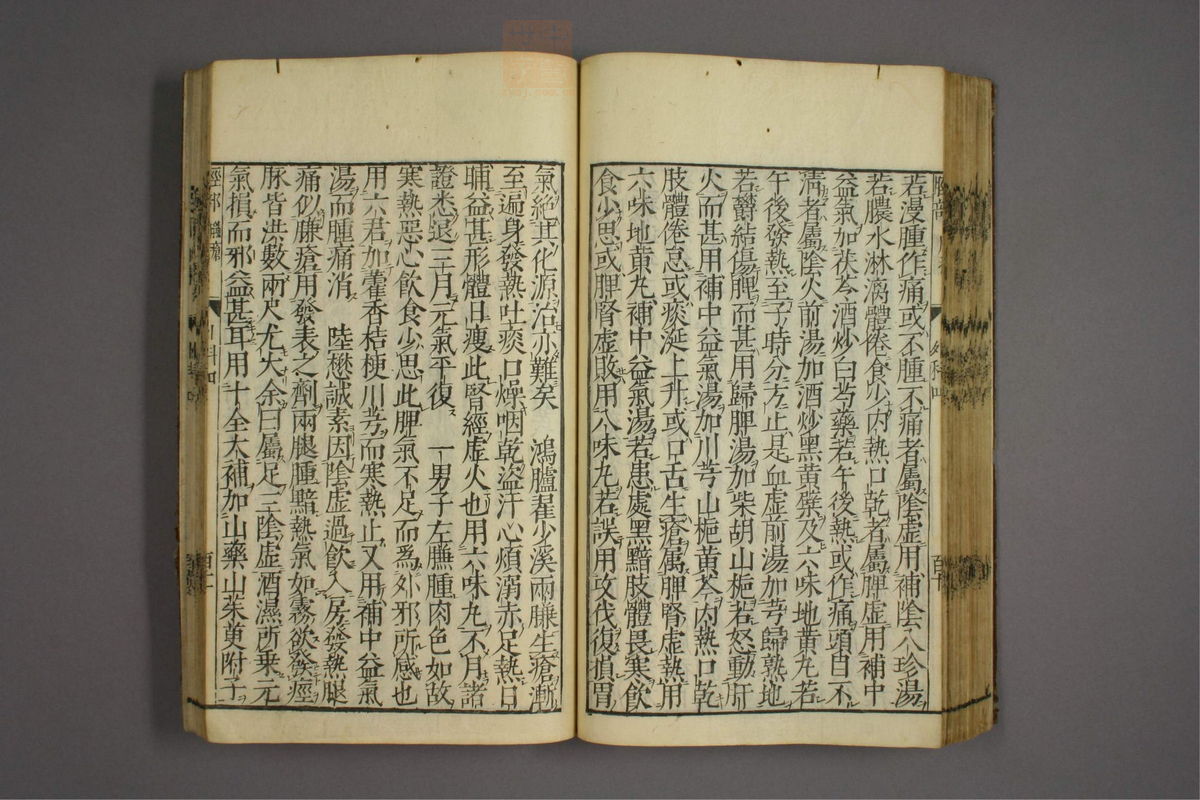 若漫腫作痛或不腫不痛者屬陰虛用補陰八珍湯
若膿水淋漓體倦食少內熱口乾者屬脾虛用補中
益氣加茯苓酒炒白芍藥若午後熱或作痛頭目不
清者屬陰火前湯加酒炒黑黃蘗及六味地黃丸若
午後發熱至子時分方止是血虛前湯加芎歸熟地
若欝結傷脾而甚用歸脾湯加柴胡山梔若怒動肝
火而甚用補中益氣湯加川芎山梔黃芩內熱口乾
肢體倦怠或痰涎上升或口舌生瘡屬脾腎虛熱用
六味地黃丸補中益氣湯若患處黑黯肢體畏寒飲
食少思或脾腎虛敗用八味丸若誤用攻伐復損胃
氣絕其化源治亦難矣　鴻臚翟少溪兩臁生瘡漸
至遍身發熱吐痰口燥咽乾盜汗心煩溺赤足熱日
晡益甚形體日瘦此腎經虛火也用六味丸不月諸
證悉退三月元氣平復　一男子左臁腫肉色如故
寒熱惡心飲食少思此脾氣不足而爲外邪所感也
用六君加藿香桔梗川芎而寒熱止又用補中益氣
湯而腫痛消　陸懋誠素因陰虛過飲入房發熱腿
痛似臁瘡用發表之劑兩腿腫黯熱氣如霧欲發痙
脉皆洪數兩尺尤大余曰屬足三陰虛酒濕所乘元
氣損而邪益甚耳用十全大補加山藥山茱萸附子